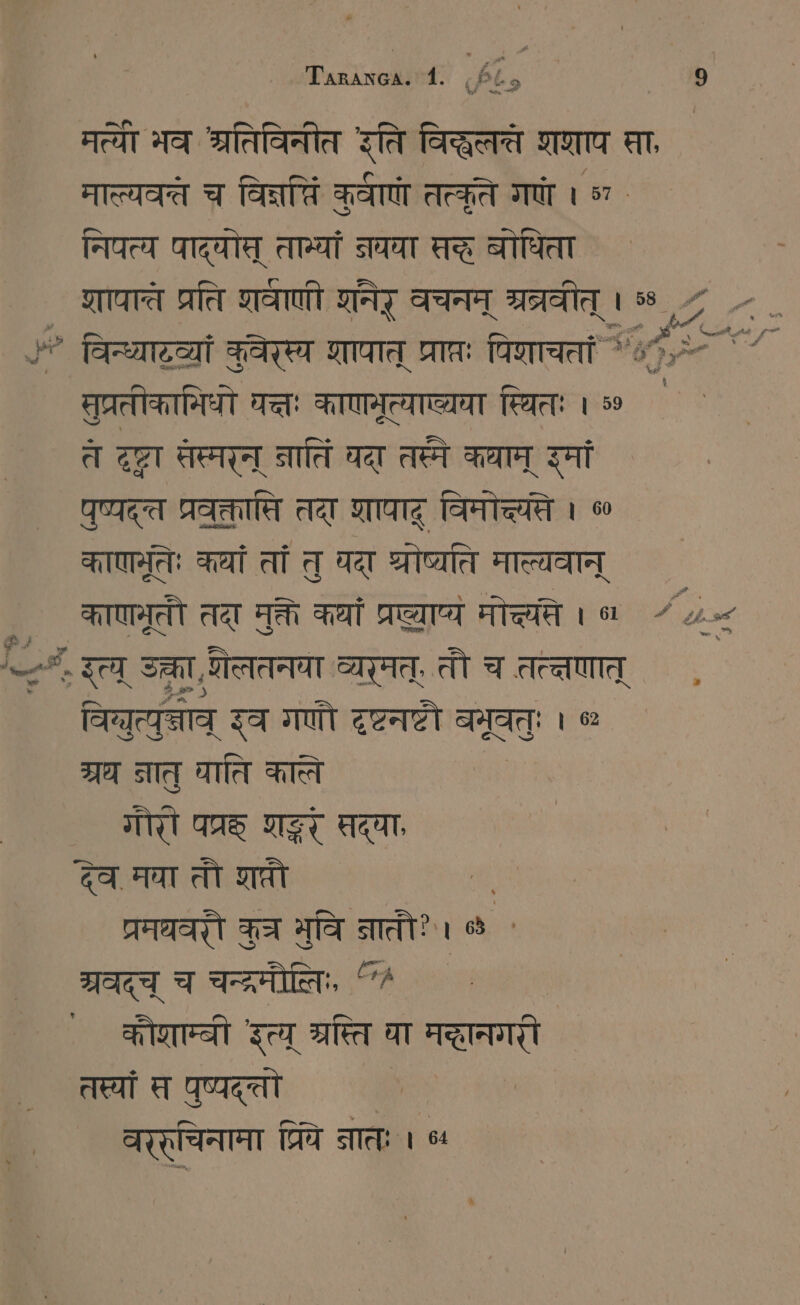 TARANGA. 1. 9
मर्त्यो भव ऽअतिविनीत ऽइति विह्वलन्तं शशाप सा,
माल्यवन्तं च विज्ञप्तिं कुर्वाणं तत्कृते गणं । 57
निपत्य पादयोस् ताभ्यां जयया सह बोधिता
शापान्तं प्रति शर्वाणी शनैर् वचनम् अब्रवीत् । 58
विन्ध्याटव्यां कुवेरस्य शापात् प्राप्तः पिशाचतां
सुप्रतीकाभिधो यक्षः काणभूत्याख्यया स्थितः । 59
तं दृष्ट्वा संस्मरन् जातिं यदा तस्मै कथाम् इमां
पुष्पदन्त प्रवक्तासि तदा शापाद् विमोक्ष्यसे । 60
काणभूतेः कथां तां तु यदा श्रोष्यति माल्यवान्
काणभूतौ तदा मुक्ते कथां प्रख्याप्य मोक्ष्यसे । 61
इत्य् उक्ता, शैलतनया व्यरमत्, तौ च तत्क्षणात्
विद्युत्पुञ्जाव् इव गणौ दृष्टनष्टौ बभूवतुः । 62
अथ जातु याति काले
गौरी पप्रछ शङ्करं सदया,
देव मया तौ शप्तौ
प्रमथवरौ कुत्र भुवि जातौ? । 63
अवदच् च चन्द्रमौलिः,
कौशाम्बी ऽइत्य् अस्ति या महानगरी
तस्यां स पुष्पदन्तो
वररुचिनामा प्रिये जातः । 64